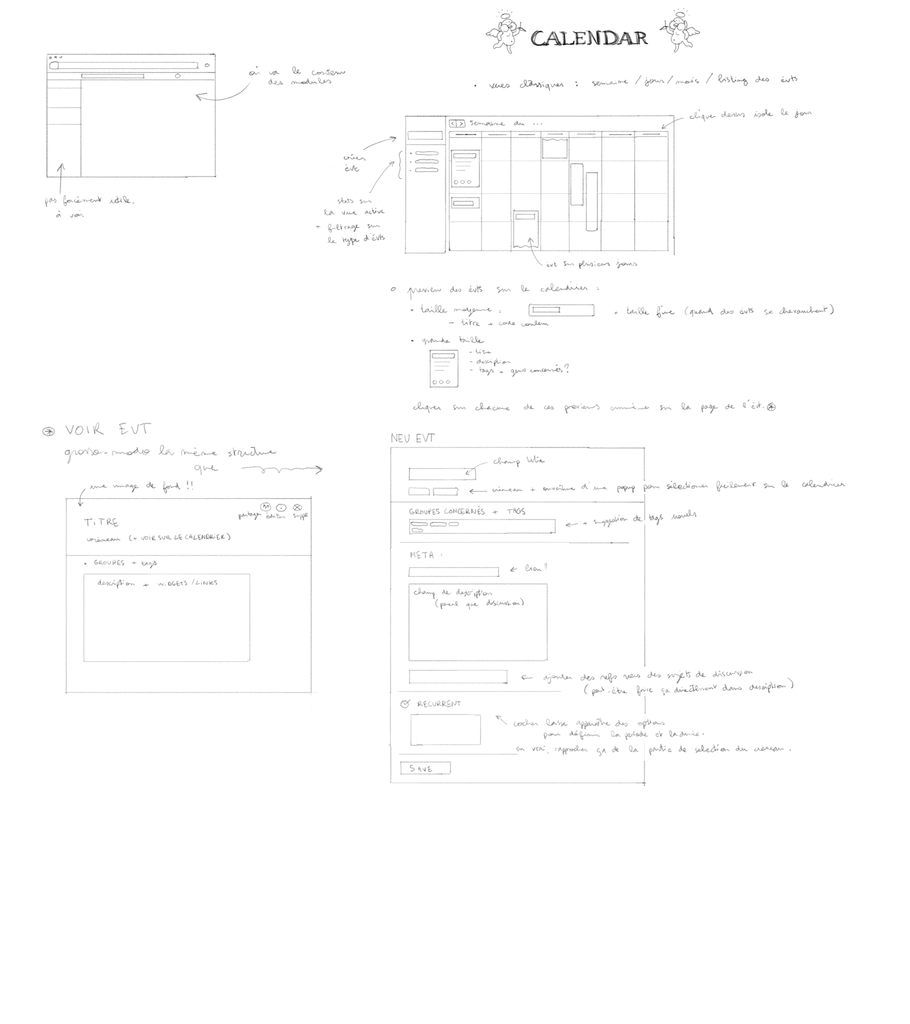 CALENDAR
où va le contenu
des modules
pas forcément utile,
à voir
• vues classiques : semaine / jours / mois / listing des évts
Semaine du ...
cliquer dessus isole le jour
créer
évt
stats sur
la vue active
+ filtrage sur
le type d'évts
evt sur plusieurs jours
preview des évts sur le calendrier :
• taille moyenne :
– titre + code couleur
• taille fine (quand des evts se chevauchent)
• grande taille
- titre
- description
- tags + gens concernés ?
cliquer sur chacune de ces previews emmène sur la page de l'évt.
VOIR EVT
grosso-modo la même structure
que
une image de fond !!
partage édition suppr
TITRE
créneau (+ VOIR SUR LE CALENDRIER)
• GROUPES + tags
description + WIDGETS / LINKS
NEU EVT
champ titre
créneau + ouverture d'une popup pour sélectionner facilement sur le calendrier
GROUPES CONCERNÉS + TAGS
+ suggestion de tags usuels
META :
lieu !
champ de description
(pareil que discussion)
ajouter des refs vers des sujets de discussion
(peut-être faire ça directement dans description)
RECURRENT
cocher laisse apparaître des options
pour définir la période et la durée.
en vrai, rapprocher ça de la partie de selection du créneau.
SAVE